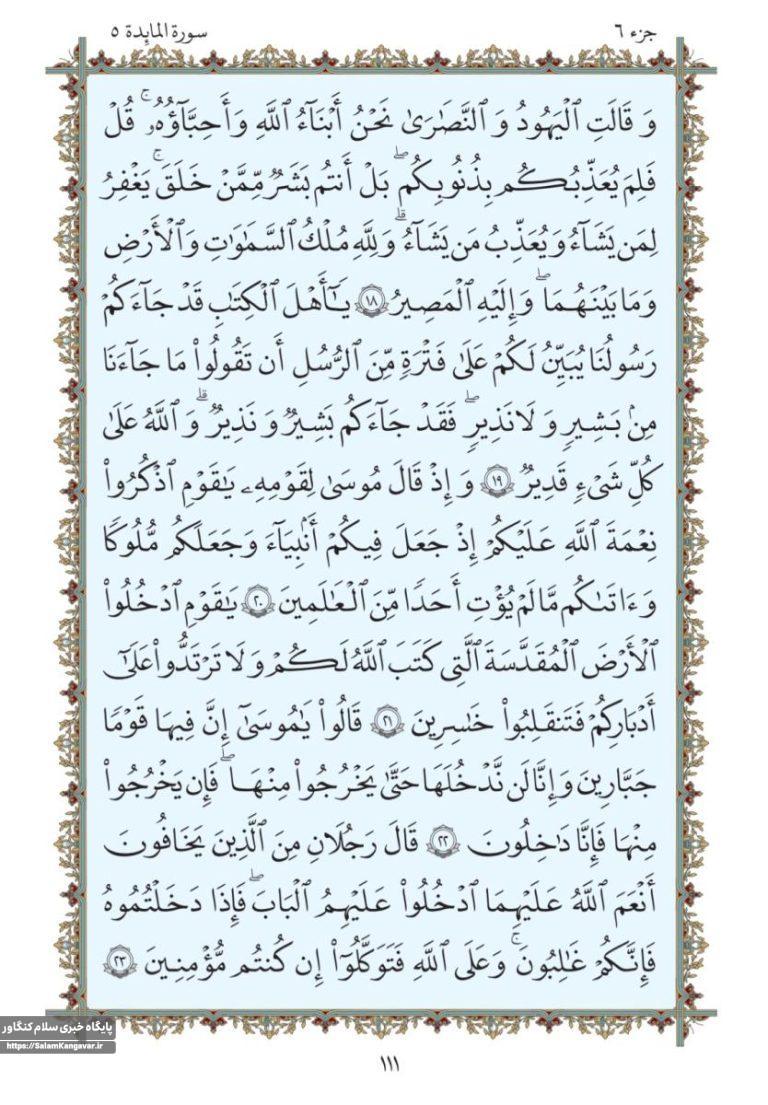 جزء ٦
سورة المائدة ٥
وَ قَالَتِ ٱلْيَهُودُ وَ ٱلنَّصَٰرَىٰ نَحْنُ أَبْنَآءُ ٱللَّهِ وَأَحِبَّآؤُهُۥۚ قُلْ
فَلِمَ يُعَذِّبُكُم بِذُنُوبِكُمۖ بَلْ أَنتُم بَشَرٌ مِّمَّنْ خَلَقَۚ يَغْفِرُ
لِمَن يَشَآءُ وَ يُعَذِّبُ مَن يَشَآءُۚ وَلِلَّهِ مُلْكُ ٱلسَّمَٰوَٰتِ وَٱلْأَرْضِ
وَ مَا بَيْنَهُمَاۖ وَ إِلَيْهِ ٱلْمَصِيرُ ١٨ يَٰٓأَهْلَ ٱلْكِتَٰبِ قَدْ جَآءَكُمْ
رَسُولُنَا يُبَيِّنُ لَكُمْ عَلَىٰ فَتْرَةٍ مِّنَ ٱلرُّسُلِ أَن تَقُولُوا۟ مَا جَآءَنَا
مِنۢ بَشِيرٍ وَ لَا نَذِيرٍۖ فَقَدْ جَآءَكُم بَشِيرٌ وَ نَذِيرٌۗ وَ ٱللَّهُ عَلَىٰ
كُلِّ شَىْءٍ قَدِيرٌ ١٩ وَ إِذْ قَالَ مُوسَىٰ لِقَوْمِهِۦ يَٰقَوْمِ ٱذْكُرُوا۟
نِعْمَةَ ٱللَّهِ عَلَيْكُمْ إِذْ جَعَلَ فِيكُمْ أَنۢبِيَآءَ وَ جَعَلَكُم مُّلُوكًا
وَ ءَاتَىٰكُم مَّا لَمْ يُؤْتِ أَحَدًا مِّنَ ٱلْعَٰلَمِينَ ٢٠ يَٰقَوْمِ ٱدْخُلُوا۟
ٱلْأَرْضَ ٱلْمُقَدَّسَةَ ٱلَّتِى كَتَبَ ٱللَّهُ لَكُمْ وَ لَا تَرْتَدُّوا۟ عَلَىٰٓ
أَدْبَارِكُمْ فَتَنقَلِبُوا۟ خَٰسِرِينَ ٢١ قَالُوا۟ يَٰمُوسَىٰٓ إِنَّ فِيهَا قَوْمًا
جَبَّارِينَ وَ إِنَّا لَن نَّدْخُلَهَا حَتَّىٰ يَخْرُجُوا۟ مِنْهَاۖ فَإِن يَخْرُجُوا۟
مِنْهَا فَإِنَّا دَٰخِلُونَ ٢٢ قَالَ رَجُلَانِ مِنَ ٱلَّذِينَ يَخَافُونَ
أَنْعَمَ ٱللَّهُ عَلَيْهِمَا ٱدْخُلُوا۟ عَلَيْهِمُ ٱلْبَابَۖ فَإِذَا دَخَلْتُمُوهُ
فَإِنَّكُمْ غَٰلِبُونَۚ وَ عَلَى ٱللَّهِ فَتَوَكَّلُوٓا۟ إِن كُنتُم مُّؤْمِنِينَ ٢٣
پایگاه خبری سلام کنگاور
https://SalamKangavar.ir
١١١